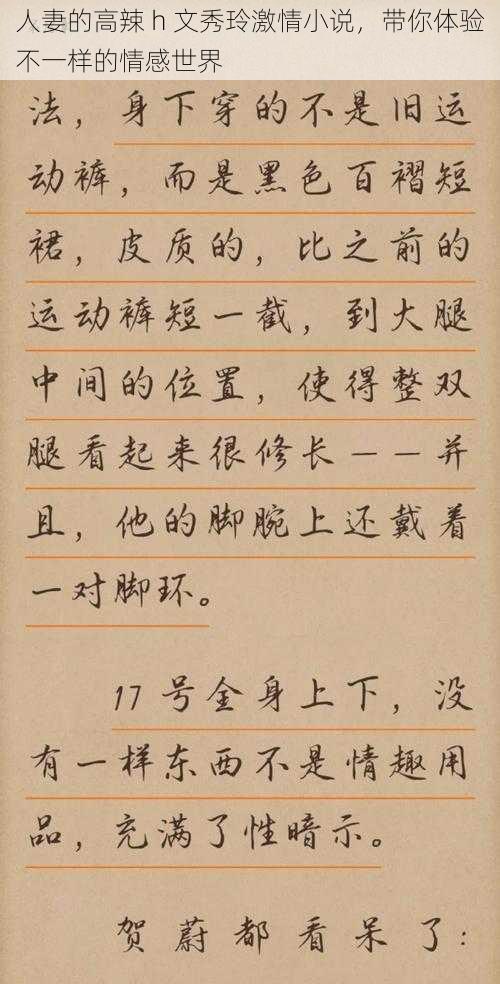 人妻的高辣 h 文秀玲激情小说，带你体验
不一样的情感世界
法，身下穿的不是旧运
动裤，而是黑色百褶短
裙，皮质的，比之前的
运动裤短一截，到大腿
中间的位置，使得整双
腿看起来很修长——并
且，他的脚腕上还戴着
一对脚环。
17 号全身上下，没
有一样东西不是情趣用
品，充满了性暗示。
贺蔚都看呆了：